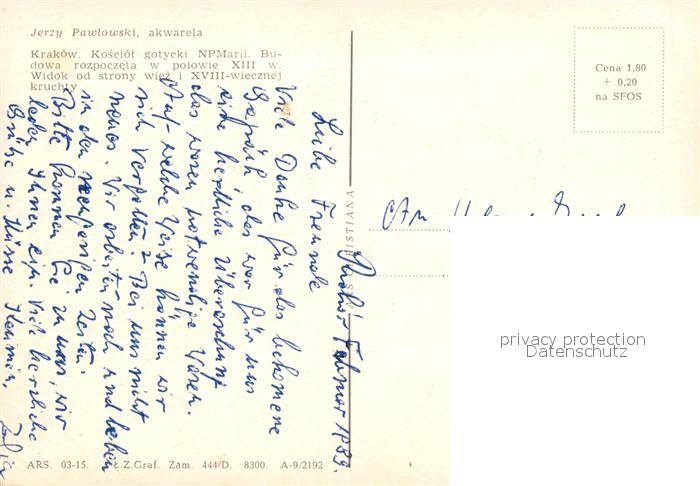 Jerzy Pawłowski, akwarela
Kraków. Kościół gotycki NPMarii. Bu-
dowa rozpoczęta w połowie XIII w.
Widok od strony wież i XVIII-wiecznej
kruchty
Cena 1,80
+ 0,20
na SFOS
Februar 1989.
Liebe Freunde
Viele Danke für das bekomene
Gepäck, das war für uns
eine herzliche Überaschung
das waren notwendige Waren.
Auf welche Weise können wir
sich vergelten? Bei uns nicht
neues. Wir arbeiten noch und leben
in den Zeiten.
Bitte kommen Sie zu uns, wir
laden Ihnen ein. Viele herzliche
Grüße u. Küsse
An
ARS. 03-15. Ł.Z.Graf. Zam. 444/D. 8300. A-9/2192
privacy protection
Datenschutz